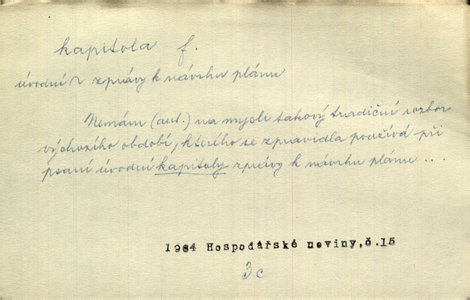 kapitola f.
úvodní ~ zprávy k návrhu plánu
Nemám (aut.) na mysli takový tradiční rozbor
výchozího období, kterého se zpravidla používá při
psaní úvodní kapitoly zprávy k návrhu plánu ...
1964 Hospodářské noviny, č.15
3c